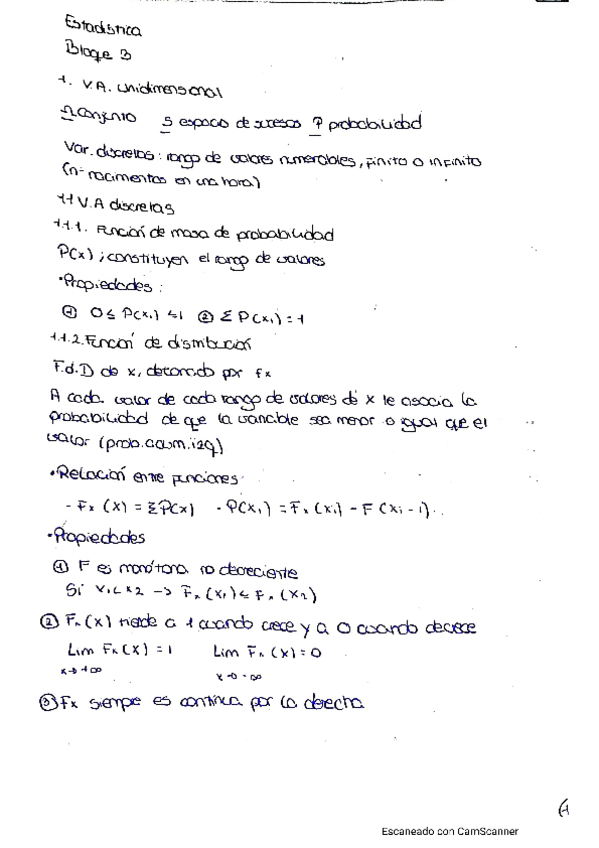 Estadística
Bloque 3
1. V.A. unidimensional
Ω conjunto S espacio de sucesos P probabilidad
Var. discretas: rango de valores numerables, finito o infinito
(nº nacimientos en una hora)
1.1 V.A discretas
1.1.1. Función de masa de probabilidad
P(x) ; constituyen el rango de valores
·Propiedades:
① 0 ≤ P(xi) ≤ 1 ② Σ P(xi) = 1
1.1.2. Función de distribución
F.d.D de x, denotado por fx
A cada valor de cada rango de valores de x le asocia la
probabilidad de que la variable sea menor o igual que el
valor (prob. acum. izq)
·Relación entre funciones
- Fx (x) = ΣP(x) - P(xi) = Fx (xi) - F (xi - 1).
·Propiedades
① F es monótona no decreciente
Si x1 < x2 -> Fx (x1) ≤ Fx (x2)
② Fx (x) tiende a 1 cuando crece y a 0 cuando decrece
Lim Fx (x) = 1 Lim Fx (x) = 0
x→+∞ x→-∞
③ Fx siempre es continua por la derecha
Escaneado con CamScanner